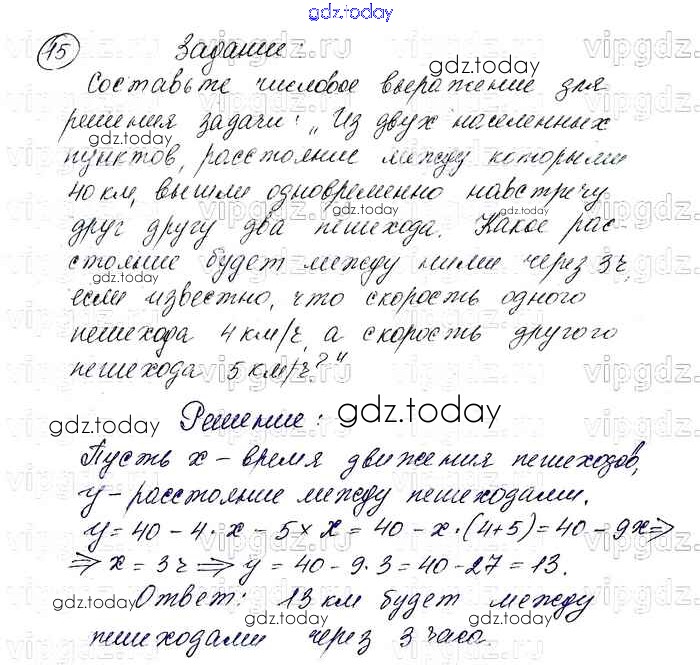 gdz.today
15 Задание:
Составьте числовое выражение для
решения задачи: „Из двух населенных
пунктов, расстояние между которыми
40 км, вышли одновременно навстречу
друг другу два пешехода. Какое рас-
стояние будет между ними через 3 ч,
если известно, что скорость одного
пешехода 4 км/ч, а скорость другого
пешехода 5 км/ч?"
Решение: gdz.today
Пусть x - время движения пешеходов,
y - расстояние между пешеходами.
y = 40 - 4 · x - 5 × x = 40 - x · (4+5) = 40 - 9x ⇒
⇒ x = 3 ч ⇒ y = 40 - 9 · 3 = 40 - 27 = 13.
Ответ: 13 км будет между
пешеходами через 3 часа.